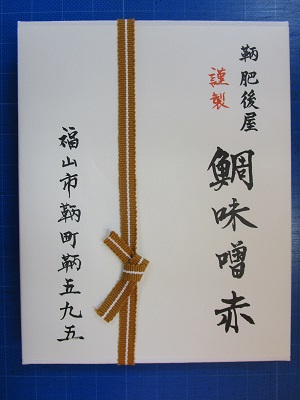 鞆肥後屋
謹製
鯛味噌赤
福山市鞆町鞆五九五